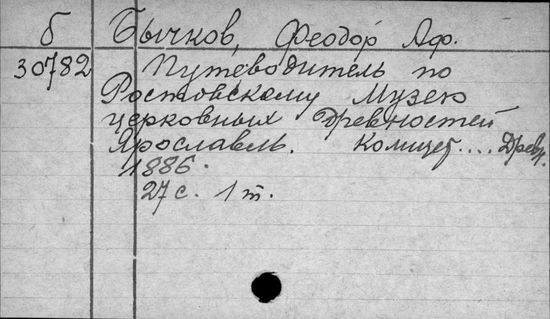 б Бычков, Феодор Аф.
30782 Путеводитель по
Ростовскому Музею
церковных Древностей
Ярославль. Комицет .... Древ.
1886.
27 с. 1 т.